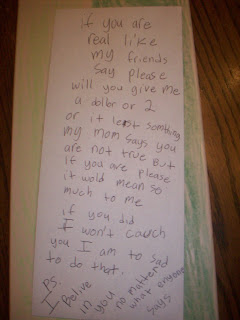 if you are
real like
my friends
say please
will you give me
a dollor or 2
or it lest somthing
my mom says you
are not true but
if you are please
it wold mean so
much to me
if you did
I won't cauch
you I am to sad
to do that.
Ps.
I Belive
in you
no matter
what enyone
says